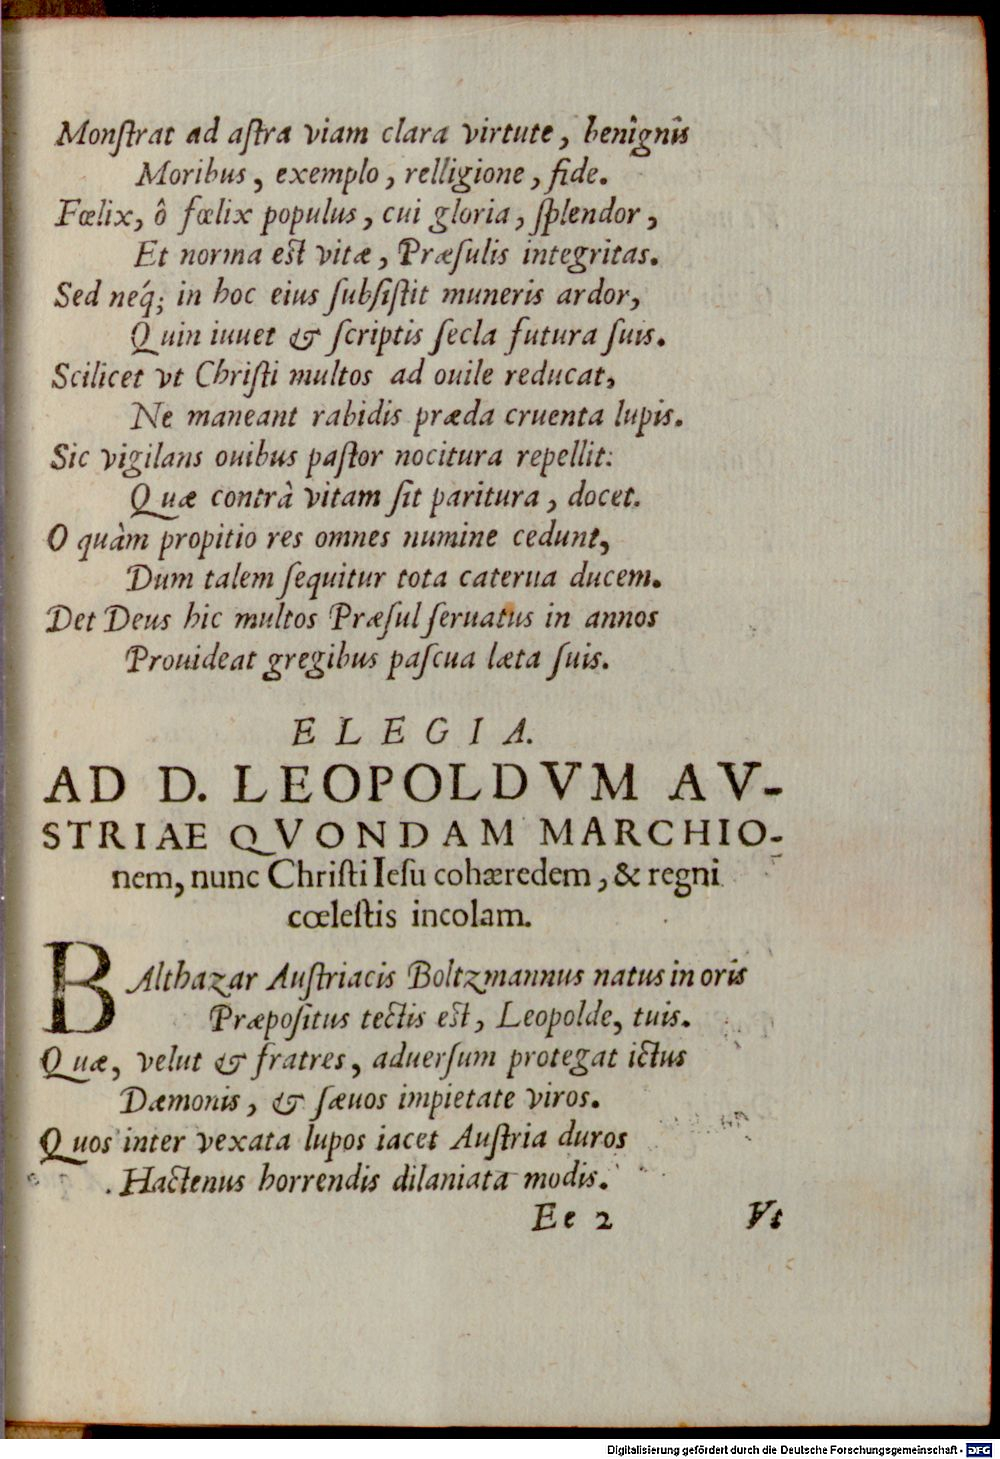 Monſtrat ad aſtra viam clara virtute, benignis
Moribus, exemplo, relligione, fide.
Fœlix, ô fœlix populus, cui gloria, ſplendor,
Et norma eſt vitæ, Præſulis integritas.
Sed neq́; in hoc eius ſubſiſtit muneris ardor,
Quin iuuet & ſcriptis ſecla futura ſuis.
Scilicet vt Chriſti multos ad ouile reducat,
Ne maneant rabidis præda cruenta lupis.
Sic vigilans ouibus paſtor nocitura repellit:
Quæ contrà vitam ſit paritura, docet.
O quàm propitio res omnes numine cedunt,
Dum talem ſequitur tota caterua ducem.
Det Deus hic multos Præſul ſeruatus in annos
Prouideat gregibus paſcua læta ſuis.
ELEGIA.
AD D. LEOPOLDVM AV-
STRIAE QVONDAM MARCHIO-
nem, nunc Chriſti Ieſu cohæredem, & regni
cœleſtis incolam.
BAlthazar Auſtriacis Boltzmannus natus in oris
Præpoſitus tectis eſt, Leopolde, tuis.
Quæ, velut & fratres, aduerſum protegat ictus
Dæmonis, & ſæuos impietate viros.
Quos inter vexata lupos iacet Auſtria duros
Hactenus horrendis dilaniata modis.
Ee 2 Vt
Digitalisierung gefördert durch die Deutsche Forschungsgemeinschaft - DFG